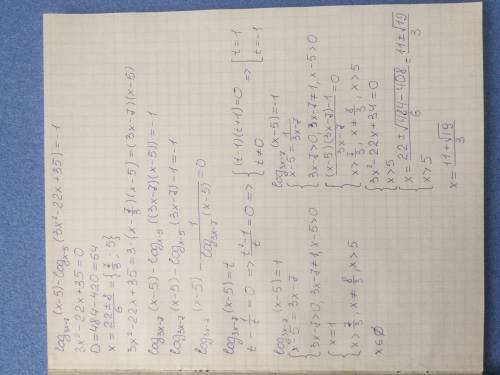 log₃ₓ₋₇ (x-5) - logₓ₋₅ (3x²-22x+35) = -1
3x²-22x+35=0
D=484-420=64
x = (22±8)/6 = {7/3; 5}
3x²-22x+35=3·(x-7/3)(x-5)=(3x-7)(x-5)
log₃ₓ₋₇ (x-5) - logₓ₋₅ ((3x-7)(x-5)) = -1
log₃ₓ₋₇ (x-5) - logₓ₋₅ (3x-7) -1 = -1
log₃ₓ₋₇ (x-5) - 1/(log₃ₓ₋₇ (x-5)) = 0
log₃ₓ₋₇ (x-5) = t
t - 1/t = 0 => (t²-1)/t = 0 => { (t-1)(t+1)=0 => [ t=1
{ t≠0 [ t=-1
log₃ₓ₋₇ (x-5)=1
{ x-5=3x-7
{ 3x-7>0, 3x-7≠1, x-5>0
{ x=1
{ x>7/3, x≠8/3, x>5
x∈∅
log₃ₓ₋₇ (x-5)=-1
{ x-5= 1/(3x-7)
{ 3x-7>0, 3x-7≠1, x-5>0
{ ((x-5)(3x-7)-1)/(3x-7) = 0
{ x>7/3, x≠8/3, x>5
{ 3x²-22x+34=0
{ x>5
{ x= (22±√(484-408))/6 = (11±√19)/3
{ x>5
x= (11+√19)/3